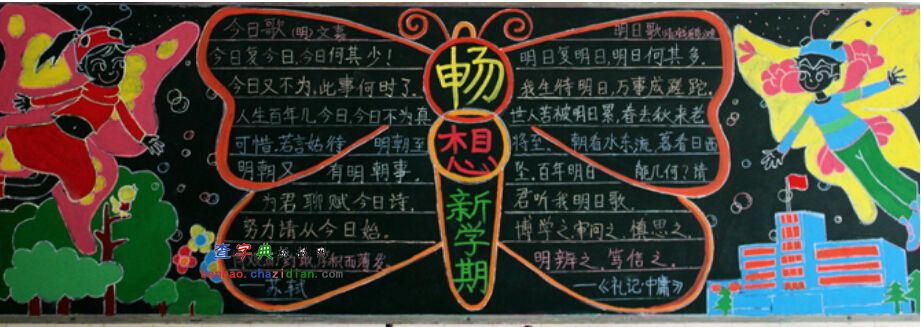 今日歌 (明) 文嘉
今日复今日,今日何其少!
今日又不为,此事何时了.
人生百年几今日,今日不为真
可惜.若言姑待 明朝至
明朝又 有明朝事.
为君聊赋今日诗,
努力请从今日始.
积而薄发
——苏轼
畅
想
新
学
期
明日歌
明日复明日,明日何其多.
我生待明日,万事成蹉跎.
世人苦被明日累,春去秋来老
将至. 朝看水东流,暮看日西
坠.百年明日 能几何?请
君听我明日歌.
博学之,审问之,慎思之,
明辨之,笃信之.
——《礼记·中庸》
查字典
chazidian.com